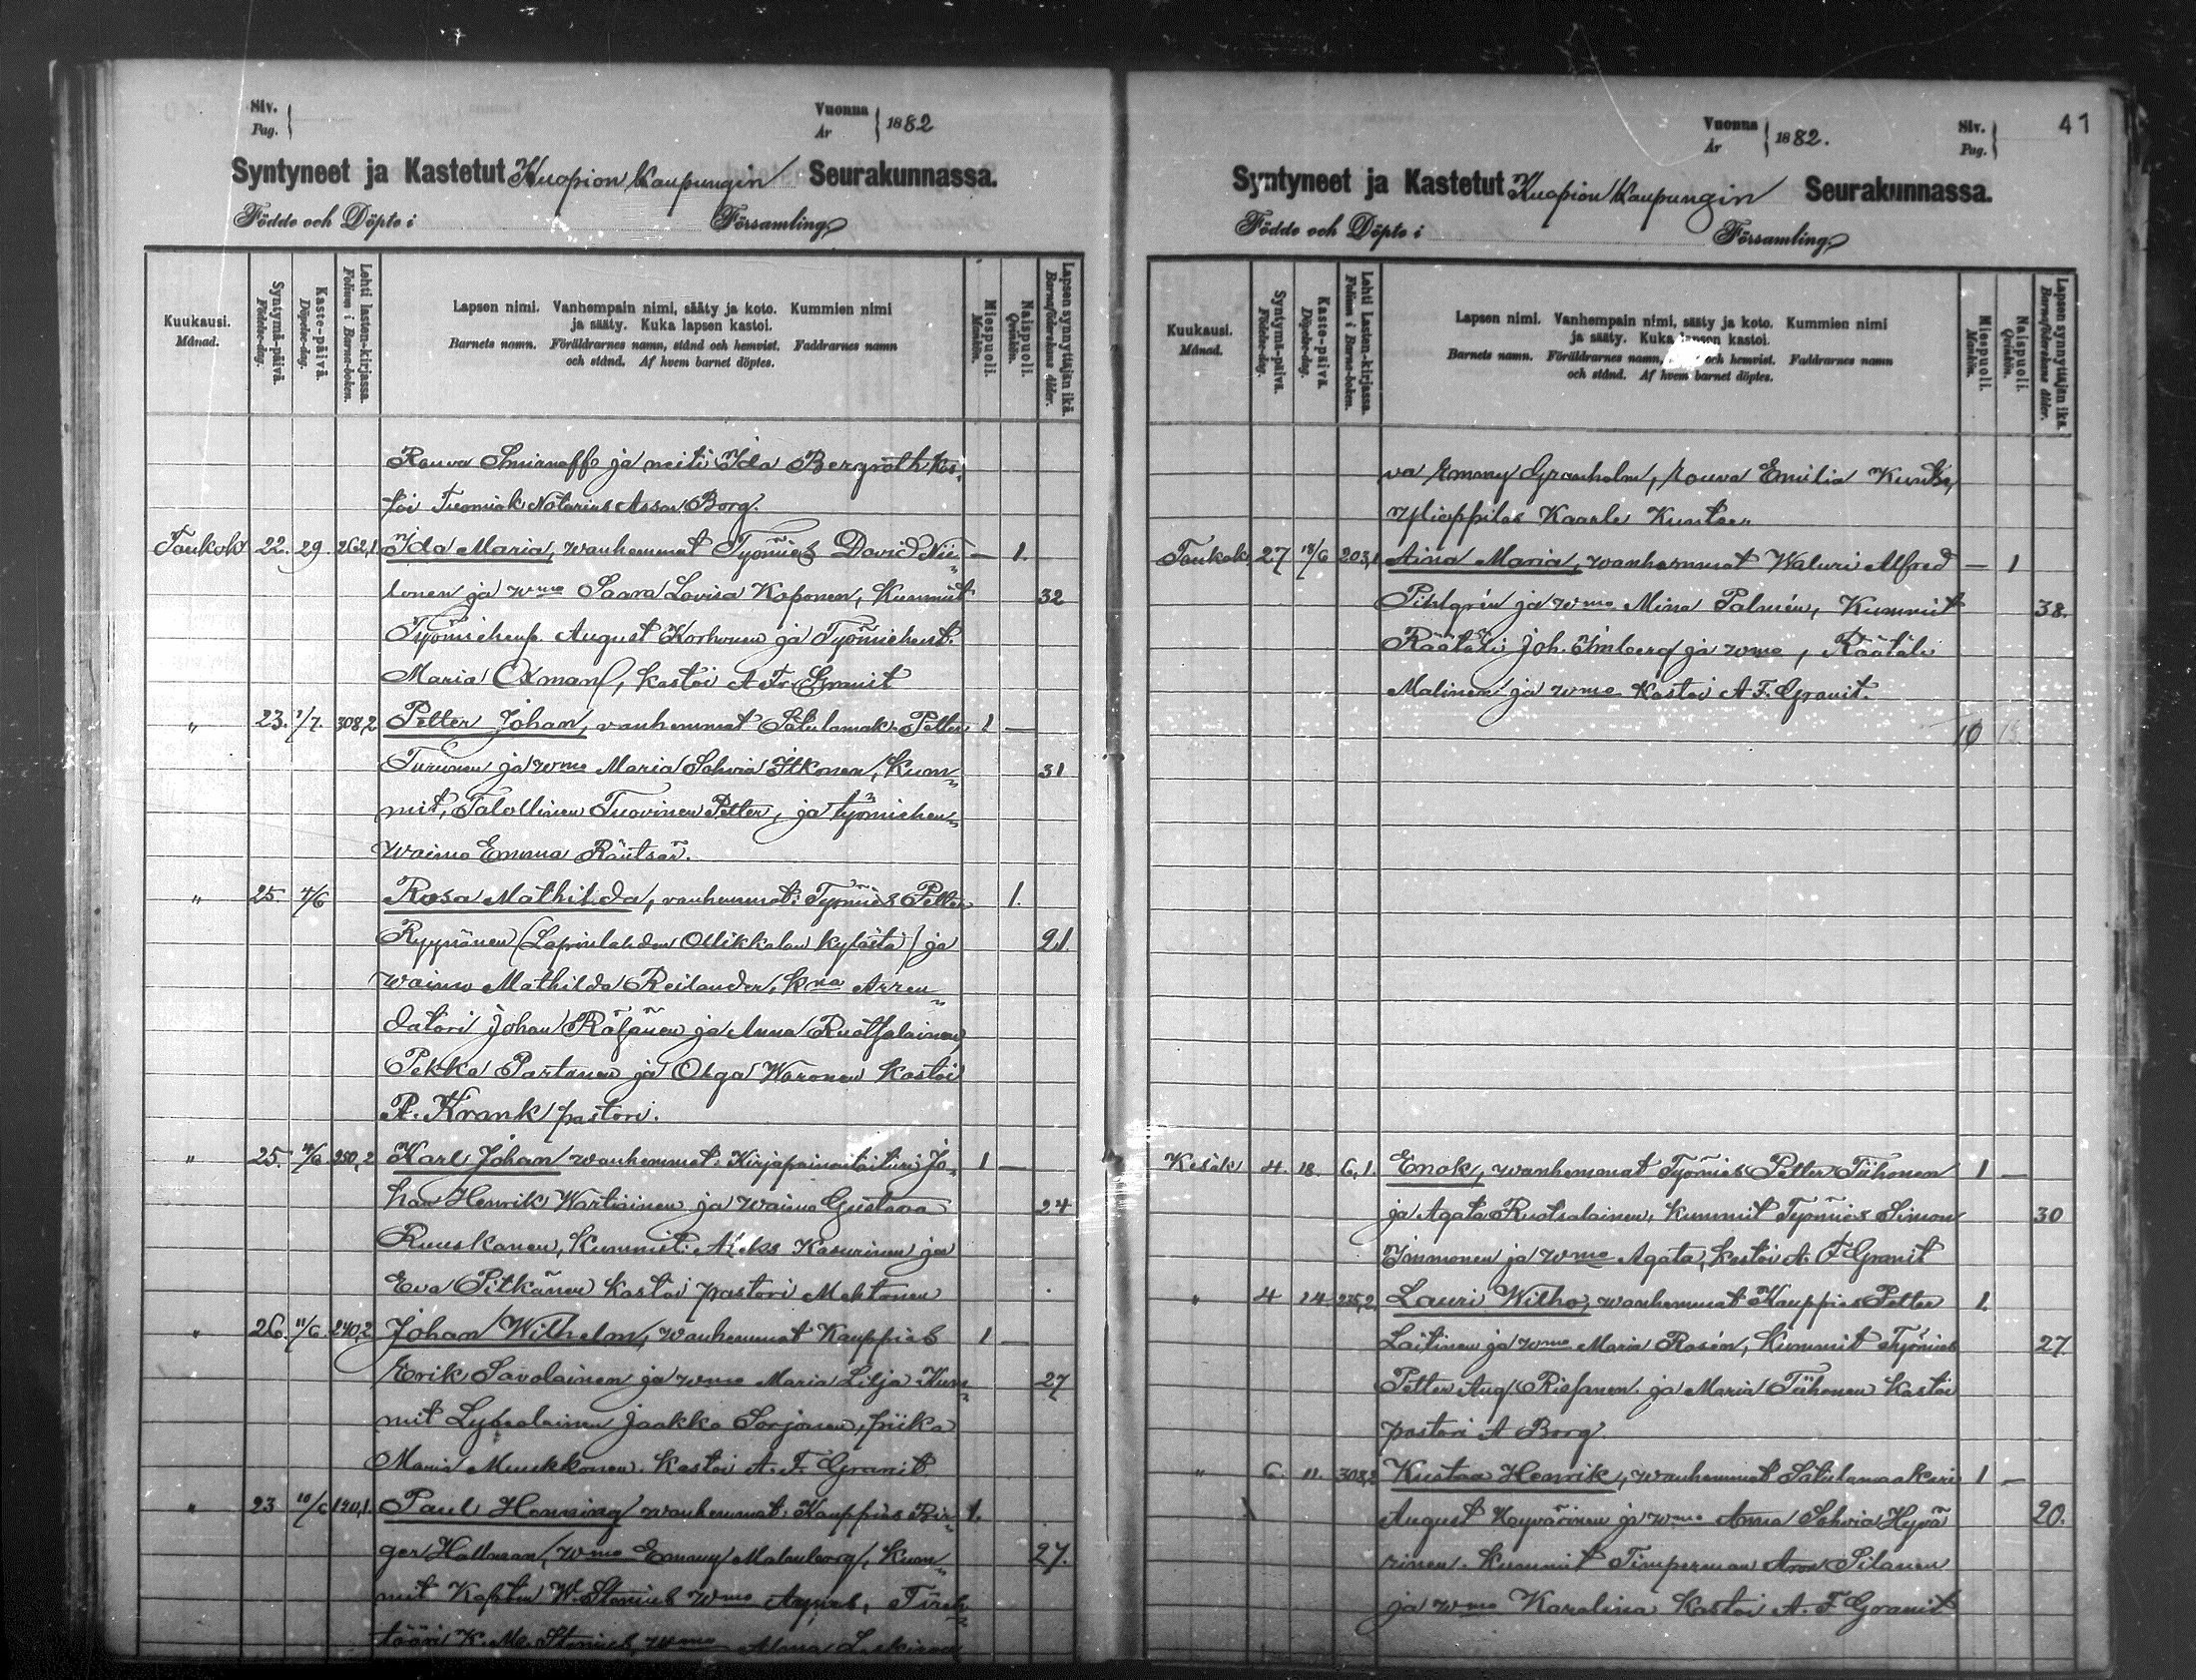 Siv.
Pag.
Vuonna
År
1882
Syntyneet ja Kastetut Kuopion Kaupungin Seurakunnassa.
Födde och Döpte i Församling
Kuukausi.
Månad.
Syntymä-päivä.
Födelse-dag.
Kaste-päivä.
Döpelse-dag.
Lehti lasten-kirjassa.
Folium i Barna-boken.
Lapsen nimi. Vanhempain nimi, sääty ja koto. Kummien nimi
ja sääty. Kuka lapsen kastoi.
Barnets namn. Föräldrarnes namn, stånd och hemvist. Faddrarnes namn
och stånd. Af hvem barnet döptes.
Miespuoli.
Mankön.
Naispuoli.
Qvinkön.
Lapsen synnyttäjän ikä.
Barnaföderskans ålder.
Rouva Smirnoff ja neiti Ida Bergroth kas-
toi Tuomiok Notarius Assar Borg.
Toukok 22. 29. 262,1 Ida Maria, wanhemmat Työmies David Nii- — 1.
lonen ja wmo Saara Lovisa Koponen, Kummit 32
Työmiehenp. August Korhonen ja Työmiehent.
Maria Oxman, kastoi A. F. Granit
" 23. 1/7. 308,2 Petter Johan, vanhemmat Satulamak. Petter 1 —
Turunen ja wmo Maria Sohvia Itkonen, Kum- 31
mit, Talollinen Tuovinen Petter, ja työmiehen-
waimo Emma Räutsar.
" 25. 4/6 Rosa Mathilda, vanhemmat: Työmies Petter 1.
Ryynänen (Lapinlahden Ollikkalan kylästä) ja 21.
waimo Mathilda Reilander, Kna Arren-
datori Johan Räsänen ja Anna Ruotsalainen,
Pekka Partanen ja Olga Waronen Kastoi
P. Krank pastori.
" 25. 250,2 Karl Johan wanhemmat: Kirjapainaitaituri Jo- 1 —
han Henrik Wartiainen ja waimo Gustava 24
Ruuskanen, Kummit: Aleks Kasurinen ja
Eva Pitkänen kastoi pastori Mehtonen
" 26. 11/6 240,2 Johan Wilhelm, wanhemmat Kauppies 1 —
Erik Savolainen ja wmo Maria Lilja Kum- 27
mit Jaakko Sorjonen, piika
Maria Muukkonen. Kastoi A. F. Granit
" 23 10/6 120,1. Paul Henning wanhemmat: Kauppies Bir- 1.
ger Hallman, wmo Emmy Malmberg, Kum- 27.
mit Kapten W. Stenius wmo Agnes, Tireh-
tööri K. M. Stenius, wmo Alma
Vuonna
År
1882.
Siv.
Pag.
41
Syntyneet ja Kastetut Kuopion Kaupungin Seurakunnassa.
Födde och Döpte i Församling
Kuukausi.
Månad.
Syntymä-päivä.
Födelse-dag.
Kaste-päivä.
Döpelse-dag.
Lehti Lasten-kirjassa.
Folium i Barna-boken.
Lapsen nimi. Vanhempain nimi, sääty ja koto. Kummien nimi
ja sääty. Kuka lapsen kastoi.
Barnets namn. Föräldrarnes namn, och hemvist. Faddrarnes namn
och stånd. Af hvem barnet döptes.
Miespuoli.
Mankön.
Naispuoli.
Qvinkön.
Lapsen synnyttäjän ikä.
Barnaföderskans ålder.
va Emmy Granholm, rouva Emilia Kuntze,
ylioppilas Kaarle Kuntze.
Toukok 27 18/6 203,1 Aina Maria, wanhemmat Waluri Alfred — 1
Pihlgrén ja wmo Mina Palmén, Kummit 38.
Räätäli Joh. Ömberg ja wmo, Räätäli
Malinen ja wmo Kastoi A. F. Granit.
10
Kesäk 4 18. 6,1. Enok, wanhemmat Työmies Petter Tiihonen 1 —
ja Agata Ruotsalainen, kummit Työmies Simon 30
Immonen ja wmo Agata, kastoi A. F Granit
" 4 14 235,2, Lauri Wilho, wanhemmat Kauppies Petter 1.
Laitinen ja wmo Maria Rosén, Kummit Työmies 27.
Petter Aug Riesanen ja Maria Tiihonen Kastoi
pastori A Borg
" 6. 11. 308,2 Kustaa Henrik, wanhemmat Satulamaakari 1 —
August Hyvärinen ja wmo Anna Sohvia Hyvä 20.
rinen. kummit Timperman Aron Silanen
ja wmo Karolina Kastoi A. F Granit